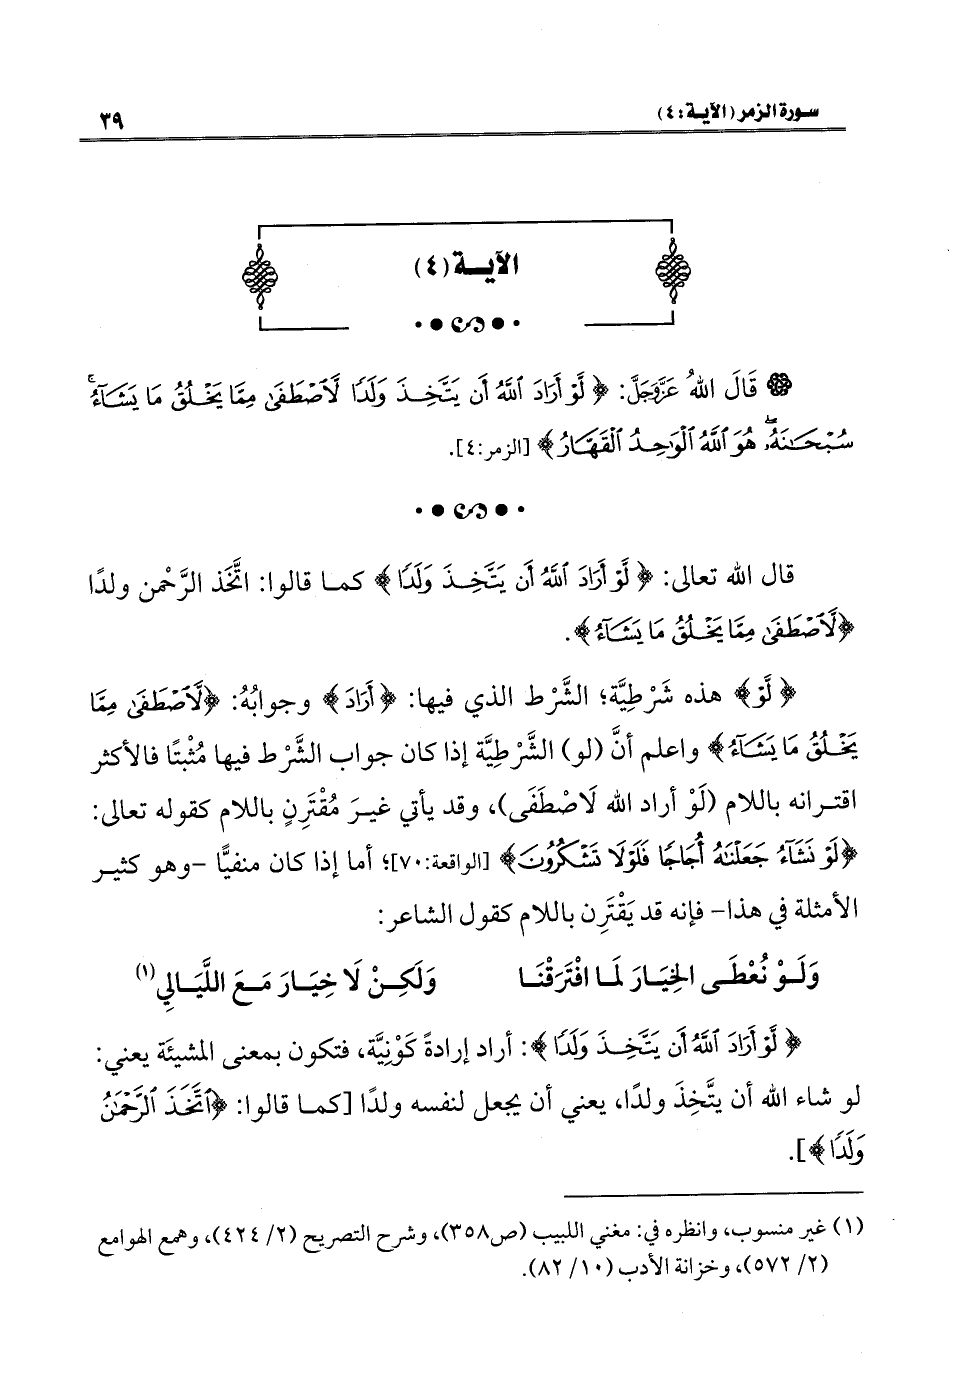 سورة الزمر (الآية: ٤)
٣٩
الآية (٤)
قَالَ اللهُ عَزَّوَجَلَّ: ﴿لَّوْ أَرَادَ ٱللَّهُ أَن يَتَّخِذَ وَلَدًا لَّٱصْطَفَىٰ مِمَّا يَخْلُقُ مَا يَشَآءُ ۚ
سُبْحَـٰنَهُۥ ۖ هُوَ ٱللَّهُ ٱلْوَٰحِدُ ٱلْقَهَّارُ﴾ [الزمر:٤].
قال الله تعالى: ﴿لَّوْ أَرَادَ ٱللَّهُ أَن يَتَّخِذَ وَلَدًا﴾ كما قالوا: اتَّخَذ الرَّحْمن ولدًا
﴿لَّٱصْطَفَىٰ مِمَّا يَخْلُقُ مَا يَشَآءُ﴾.
﴿لَّوْ﴾ هذه شَرْطِيَّة؛ الشَّرْط الذي فيها: ﴿أَرَادَ﴾ وجوابُهُ: ﴿لَّٱصْطَفَىٰ مِمَّا
يَخْلُقُ مَا يَشَآءُ﴾ واعلم أنَّ (لو) الشَّرْطِيَّة إذا كان جواب الشَّرْط فيها مُثْبتًا فالأكثر
اقترانه باللام (لَوْ أراد الله لَاصْطَفَى)، وقد يأتي غيرَ مُقْتَرِنٍ باللام كقوله تعالى:
﴿لَوْ نَشَآءُ جَعَلْنَـٰهُ أُجَاجًا فَلَوْلَا تَشْكُرُونَ﴾ [الواقعة:٧٠]؛ أما إذا كان منفيًّا -وهو كثير
الأمثلة في هذا- فإنه قد يَقْتَرِن باللام كقول الشاعر:
وَلَوْ نُعْطَى الخِيَارَ لَمَا افْتَرَقْنَا وَلَكِنْ لَا خِيَارَ مَعَ اللَّيَالِي(١)
﴿لَّوْ أَرَادَ ٱللَّهُ أَن يَتَّخِذَ وَلَدًا﴾: أراد إرادةً كَوْنِيَّة، فتكون بمعنى المشيئة يعني:
لو شاء الله أن يتَّخِذَ ولدًا، يعني أن يجعل لنفسه ولدًا [كما قالوا: ﴿ٱتَّخَذَ ٱلرَّحْمَـٰنُ
وَلَدًا﴾].
(١) غير منسوب، وانظره في: مغني اللبيب (ص٣٥٨)، وشرح التصريح (٢/ ٤٢٤)، وهمع الهوامع
(٢/ ٥٧٢)، وخزانة الأدب (١٠/ ٨٢).